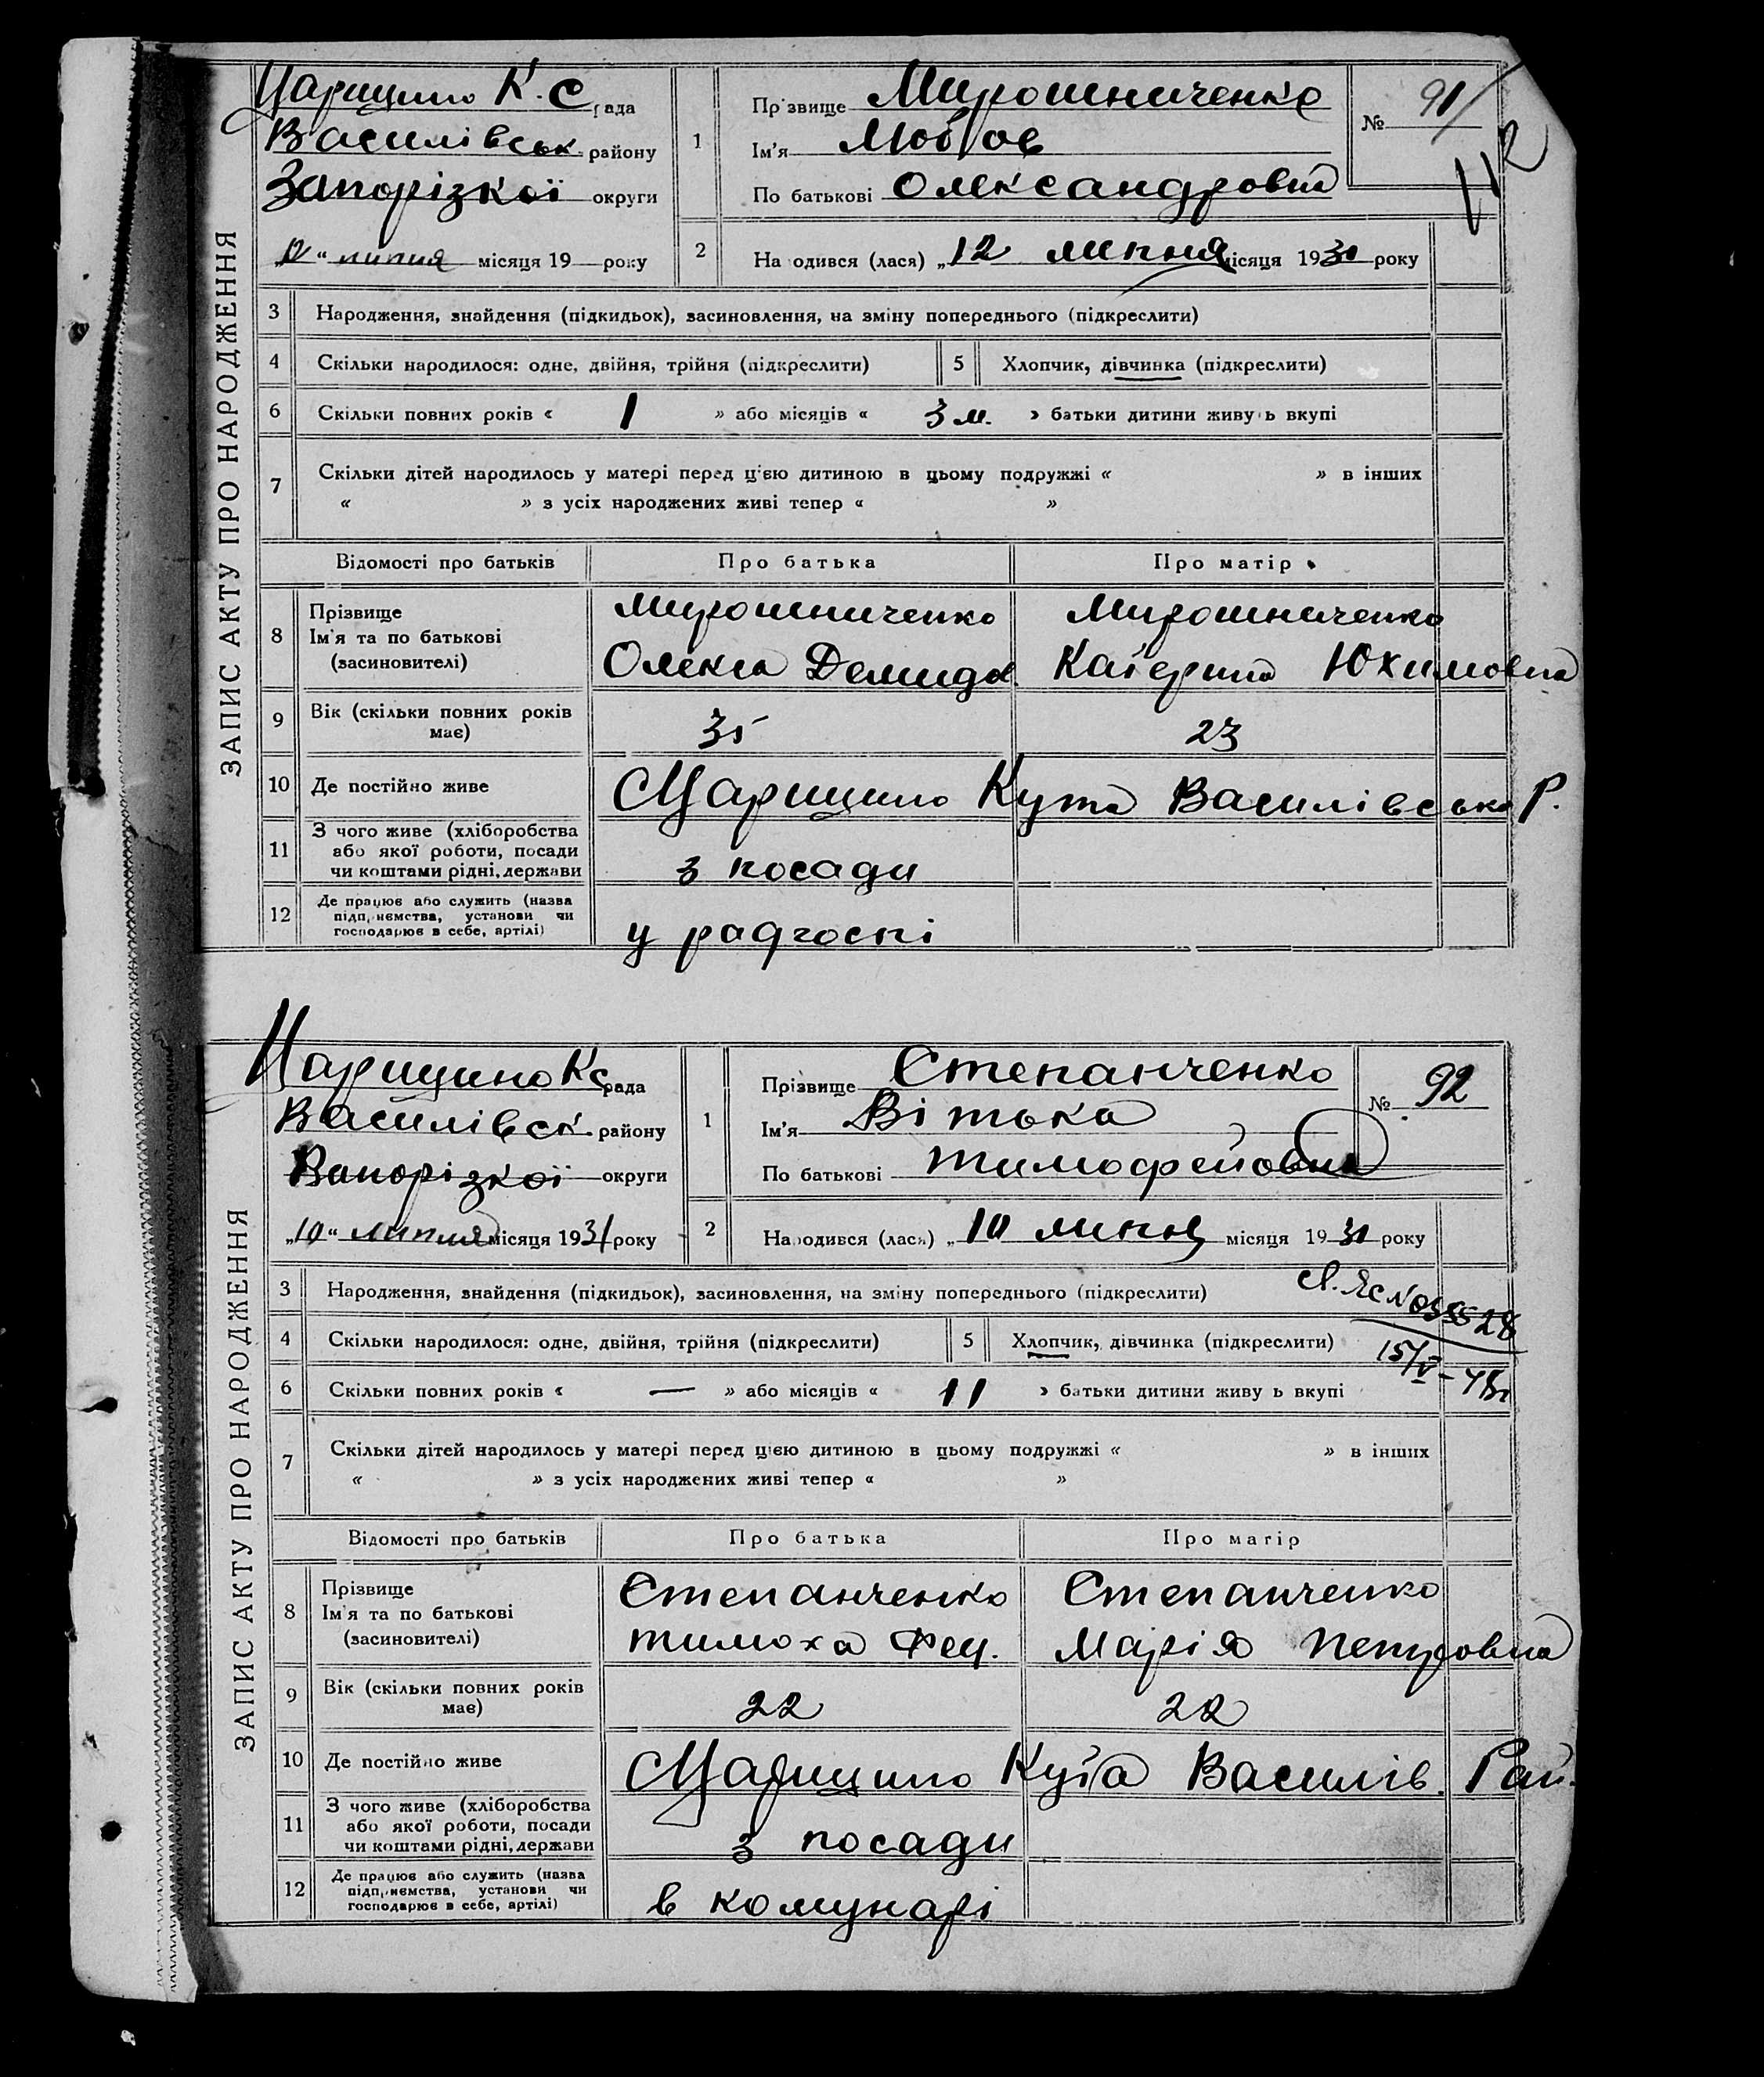 ЗАПИС АКТУ ПРО НАРОДЖЕННЯ
Царицино К. С рада
Василівськ району
Запорізкої округи
„12“ липня місяця 19 року
1
Прізвище Мирошниченко
Ім’я Любов
По батькові Олександровна
№ 91
2
Народився (лася) „12 липня місяця 1931 року
3 Народження, знайдення (підкидьок), засиновлення, на зміну попереднього (підкреслити)
4 Скільки народилося: одне, двійня, трійня (підкреслити)
5 Хлопчик, дівчинка (підкреслити)
6 Скільки повних років « 1 » або місяців « 3 м. » батьки дитини живуть вкупі
7 Скільки дітей народилось у матері перед цією дитиною в цьому подружжі « » в інших
« » з усіх народжених живі тепер « »
Відомості про батьків Про батька Про матір
8 Прізвище Мирошниченко Мирошниченко
Ім’я та по батькові
(засиновителі) Олекса Демидов. Катерина Юхимовна
9 Вік (скільки повних років
має) 35 23
10 Де постійно живе Царицино Кута Василівсько Р.
11 З чого живе (хліборобства
або якої роботи, посади
чи коштами рідні, держави з посади
12 Де працює або служить (назва
підприємства, установи чи
господарює в себе, артілі) у радгоспі
ЗАПИС АКТУ ПРО НАРОДЖЕННЯ
Царицино К С рада
Василівск району
Запорізкої округи
„10“ липня місяця 1931 року
1
Прізвище Степанченко
Ім’я Вітька
По батькові Тимофейовна
№ 92
2
Народився (лася) „10 липня місяця 1931 року
3 Народження, знайдення (підкидьок), засиновлення, на зміну попереднього (підкреслити)
4 Скільки народилося: одне, двійня, трійня (підкреслити)
5 Хлопчик, дівчинка (підкреслити)
15/V-48г
6 Скільки повних років « — » або місяців « 11 » батьки дитини живу ь вкупі
7 Скільки дітей народилось у матері перед цією дитиною в цьому подружжі « » в інших
« » з усіх народжених живі тепер « »
Відомості про батьків Про батька Про матір
8 Прізвище Степанченко Степанченко
Ім’я та по батькові
(засиновителі) Тимоха Фец. Марія Петровна
9 Вік (скільки повних років
має) 22 22
10 Де постійно живе Царицино Кута Василів. Рай.
11 З чого живе (хліборобства
або якої роботи, посади
чи коштами рідні, держави з посади
12 Де працює або служить (назва
підприємства, установи чи
господарює в себе, артілі) в комунарі